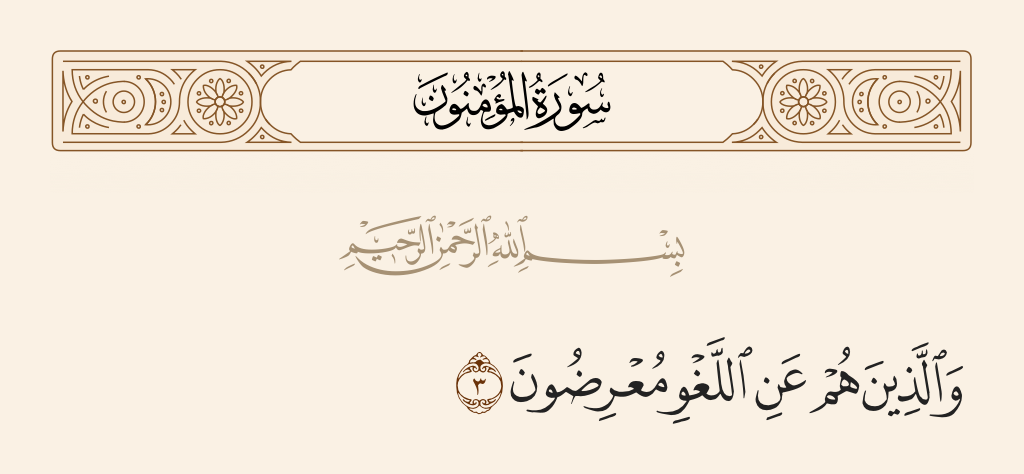 سُورَةُ المُؤْمِنُونَ
بِسْمِ ٱللَّهِ ٱلرَّحْمَٰنِ ٱلرَّحِيمِ
وَٱلَّذِينَ هُمْ عَنِ ٱللَّغْوِ مُعْرِضُونَ ٣